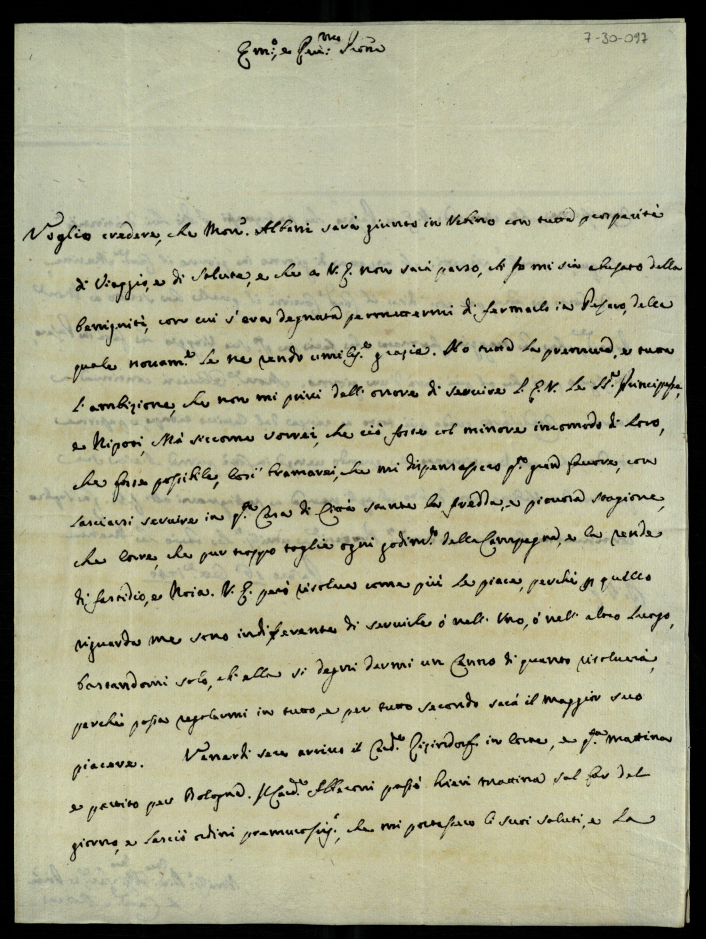 7-30-097
Em.o, e Rev.mo Sig.re
Voglio credere, che Mon.r Albani sarà giunto in Urbino con tutta prosperità
di Viaggio, e di Salute, e che a V. E. non sarà parso, ch'Io mi sia abusato della
benignità, con cui s'era degnata permettermi di fermarlo in Pesaro, della
quale novam.te Le ne rendo umiliss.e grazie. Ho tutta la premura, e tutta
l'ambizione, che non mi privi dell'onore di servire l'E.V. La S.ra Principessa,
e Nipoti, Mà siccome vorrei, che ciò fosse col minore incomodo di Loro,
che fosse possibile, così bramarei, che mi dispensassero p. gran favore, con
lasciarsi servire in q.ta Casa di Città stante la fredda, e piovosa stagione,
che corre, che pur troppo toglie ogni godim.to della Campagna, e la rende
di fastidio, e Noia. V. E. però risolva come più Le piace, perchè p quello
riguarda me sono indiferente di servirla ò nell'Uno, ò nell'altro Luogo,
bastandomi solo, ch'ella si degni darmi un Cenno di quanto risolverà,
perchè possa regolarmi in tutto, e per tutto secondo sarà il maggior suo
piacere. Venerdì sera arrivò il Card.e in, e q.ta mattina
è partito per Bologna. Il Card.e Alberoni passò hieri mattina sul far del
giorno, e lasciò ordini premurosiss.i, che mi portassero li suoi saluti, e La